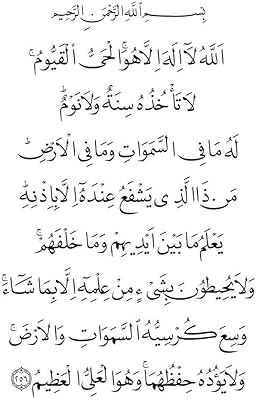 بِسْمِ اللَّهِ الرَّحْمَنِ الرَّحِيمِ
اَللَّهُ لَا إِلَهَ إِلَّا هُوَ الْحَيُّ الْقَيُّومُ
لَا تَأْخُذُهُ سِنَةٌ وَلَا نَوْمٌ
لَهُ مَا فِي السَّمَوَاتِ وَمَا فِي الْأَرْضِ
مَنْ ذَا الَّذِي يَشْفَعُ عِنْدَهُ إِلَّا بِإِذْنِهِ
يَعْلَمُ مَا بَيْنَ أَيْدِيهِمْ وَمَا خَلْفَهُمْ
وَلَا يُحِيطُونَ بِشَيْءٍ مِنْ عِلْمِهِ إِلَّا بِمَا شَاءَ
وَسِعَ كُرْسِيُّهُ السَّمَوَاتِ وَالْأَرْضَ
وَلَا يَؤُدُهُ حِفْظُهُمَا وَهُوَ الْعَلِيُّ الْعَظِيمُ ﴿٢٥٦﴾